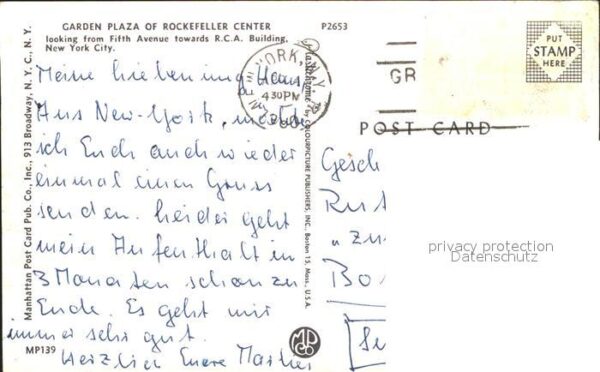 GARDEN PLAZA OF ROCKEFELLER CENTER
looking from Fifth Avenue towards R.C.A. Building,
New York City.
P2653
Manhattan Post Card Pub. Co., Inc., 913 Broadway, N. Y. C., N. Y.
Plastichrome by COLOURPICTURE PUBLISHERS, INC., Boston 15, Mass., U.S.A.
NEW YORK, N.Y.
430PM
GR
PUT
STAMP
HERE
POST CARD
Meine lieben
Aus New-York, möchte
ich Euch auch wieder
einmal einen Gruss
senden. Leider geht
mein Aufenthalt in
3 Monaten schon zu
Ende. Es geht mir
immer sehr gut.
Herzlich Euere
Gesch
Rut
"zu
Bo
Se
privacy protection
Datenschutz
MPCo
MP139